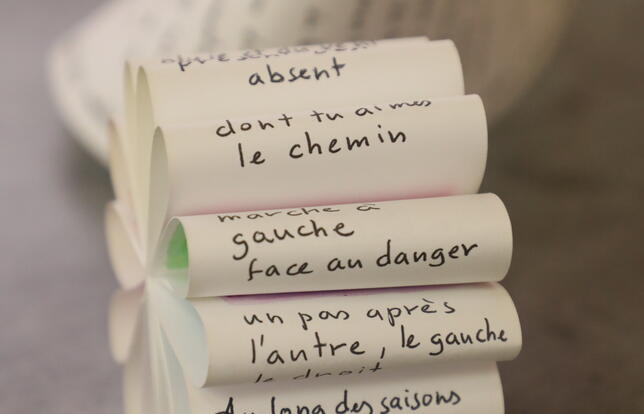 absent
dont tu aimes
le chemin
marche à
gauche
face au danger
un pas après
l'autre, le gauche
le droit
Au long des saisons